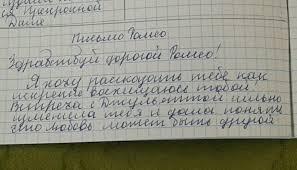 ия Прекрасной
Даме
Письмо Ромео
Здравствуй дорогой Ромео!
Я хочу рассказать тебе как
искренне восхищаюсь тобой!
Встреча с Джульеттой сильно
изменила тебя и дала понять
что любовь может быть другой